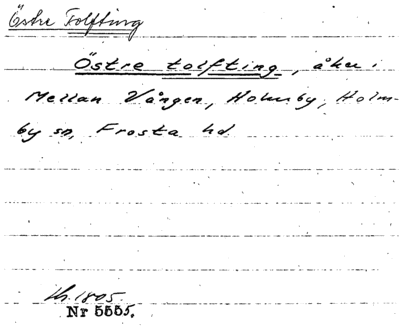 Östre Tolfting
Östre tolfting, åker i
Mellan Vången, Holmby, Holm-
by sn, Frosta hd
1805.
Nr 5555.